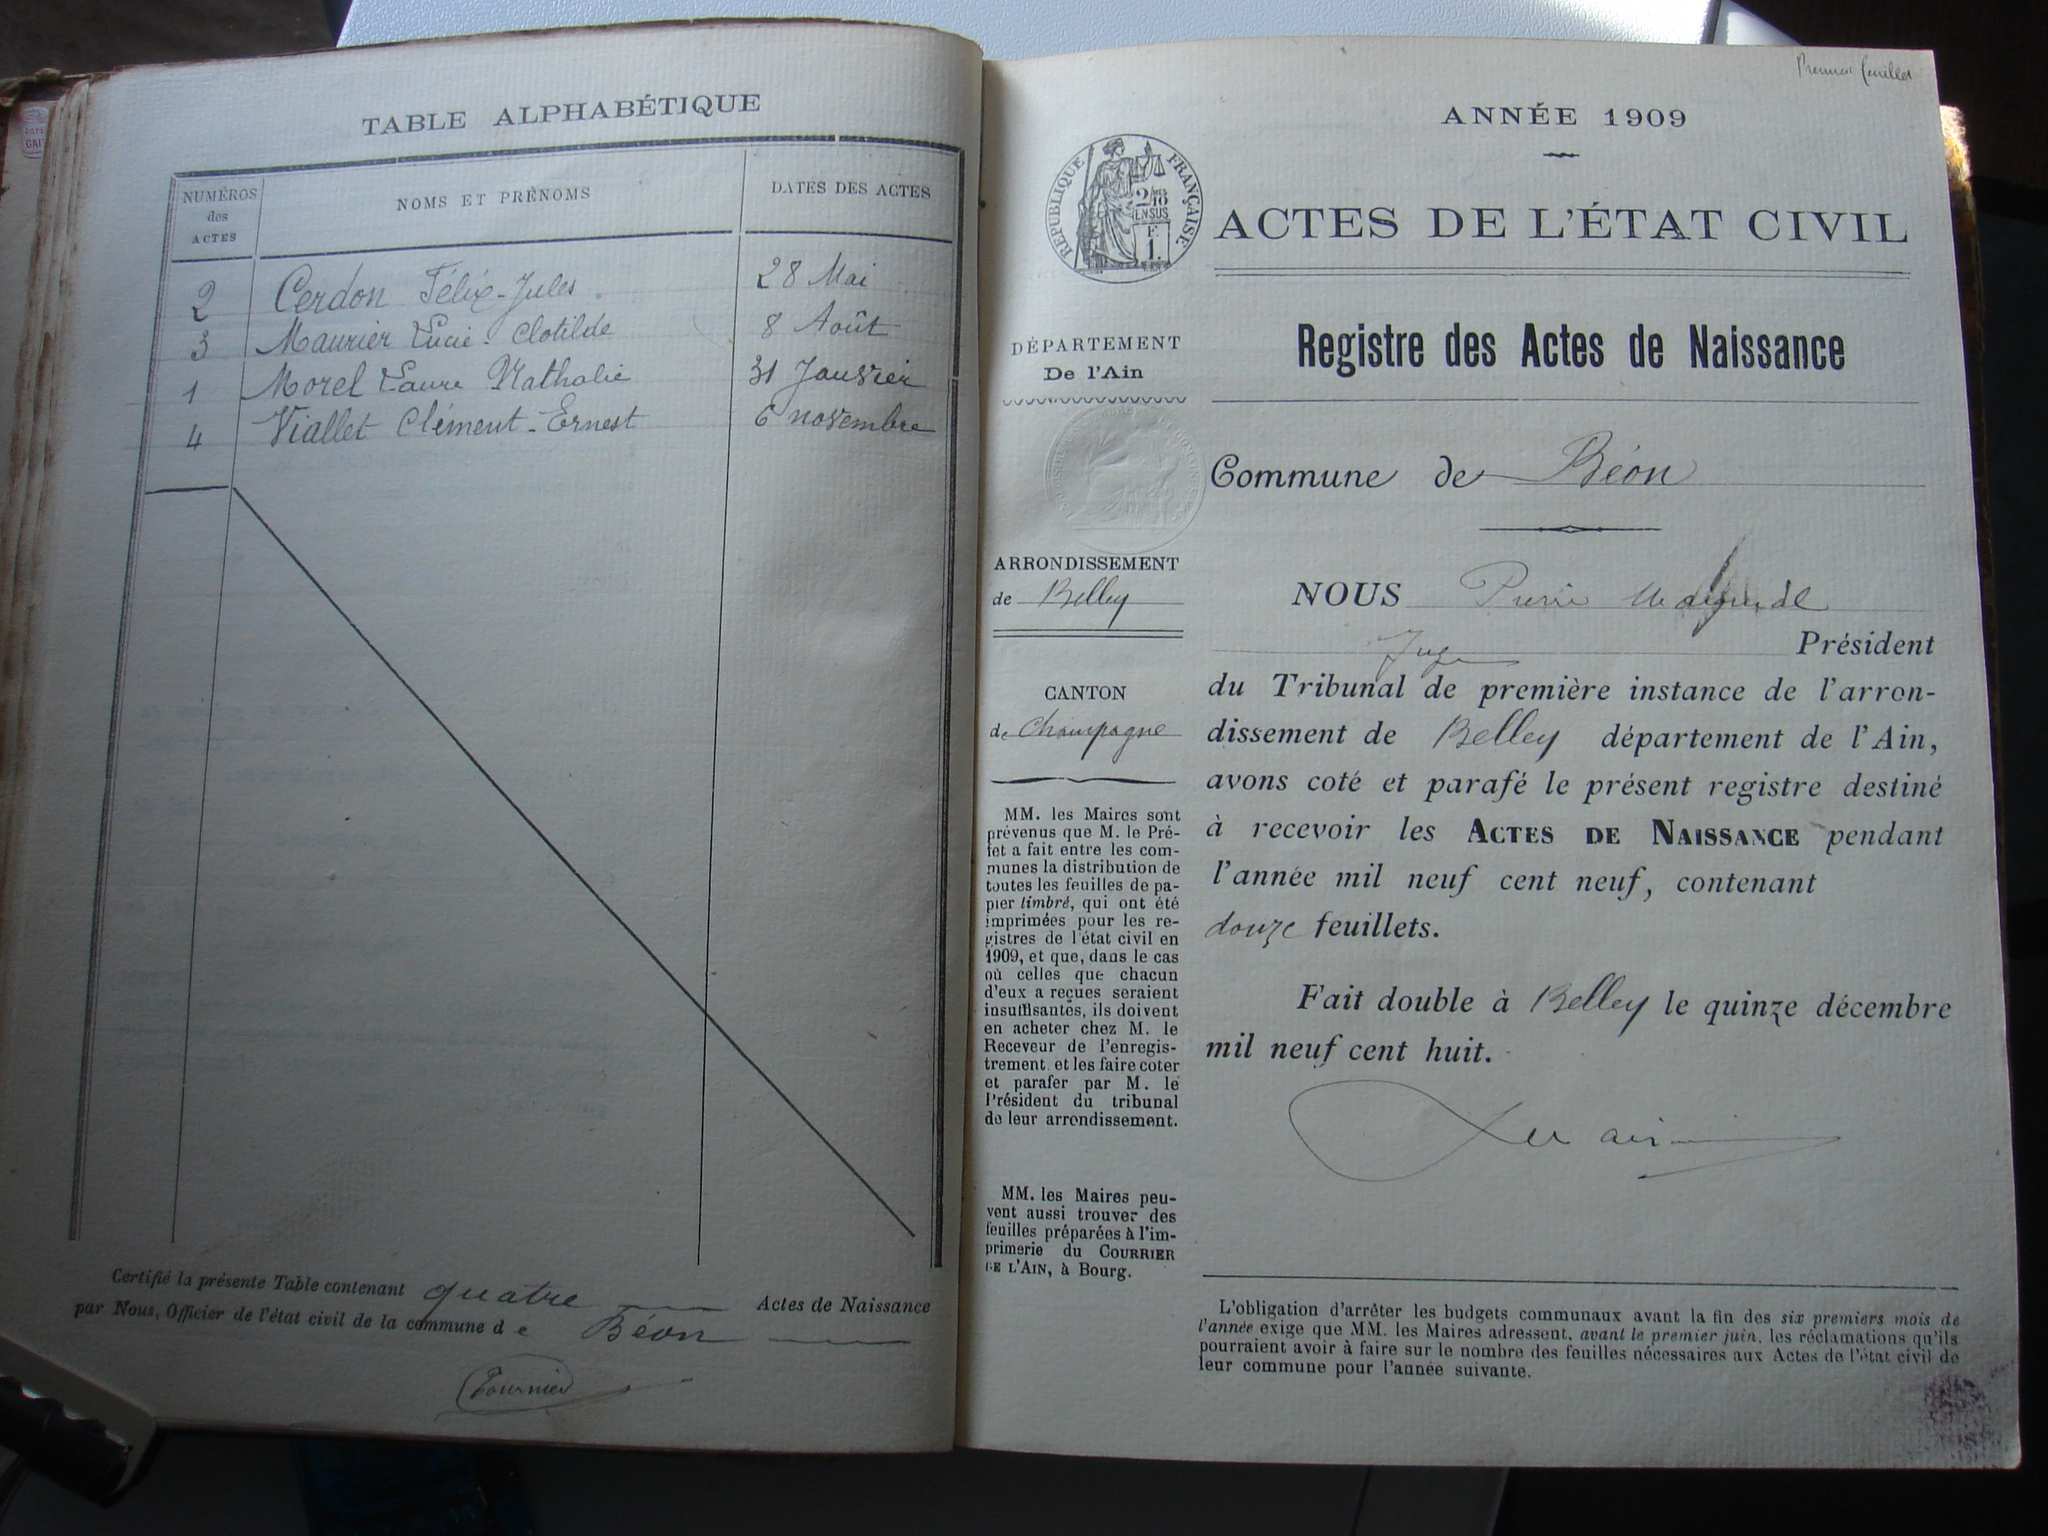 TABLE ALPHABÉTIQUE
NUMÉROS des ACTES
NOMS ET PRÉNOMS
DATES DES ACTES
2 Cerdon Félix-Jules 28 Mai
3 Maurier Lucie-Clotilde 8 Août
1 Morel Laure Mathalie 31 Janvier
4 Viallet Clément-Ernest 6 novembre
Certifié la présente Table contenant quatre Actes de Naissance
par Nous, Officier de l'état civil de la commune de Béon
Fournier
Premier feuillet
ANNÉE 1909
RÉPUBLIQUE FRANÇAISE
2/10
EN SUS
1 F.
ACTES DE L'ÉTAT CIVIL
DÉPARTEMENT
De l'Ain
ARRONDISSEMENT
de Belley
CANTON
de Champagne
MM. les Maires sont
prévenus que M. le Pré-
fet a fait entre les com-
munes la distribution de
toutes les feuilles de pa-
pier timbré, qui ont été
imprimées pour les re-
gistres de l'état civil en
1909, et que, dans le cas
où celles que chacun
d'eux a reçues seraient
insuffisantes, ils doivent
en acheter chez M. le
Receveur de l'enregis-
trement et les faire coter
et parafer par M. le
Président du tribunal
de leur arrondissement.
MM. les Maires peu-
vent aussi trouver des
feuilles préparées à l'im-
primerie du COURRIER
DE L'AIN, à Bourg.
Registre des Actes de Naissance
Commune de Béon
NOUS Pierre
Juge Président
du Tribunal de première instance de l'arron-
dissement de Belley département de l'Ain,
avons coté et parafé le présent registre destiné
à recevoir les ACTES DE NAISSANCE pendant
l'année mil neuf cent neuf, contenant
douze feuillets.
Fait double à Belley le quinze décembre
mil neuf cent huit.
L'obligation d'arrêter les budgets communaux avant la fin des six premiers mois de
l'année exige que MM. les Maires adressent, avant le premier juin, les réclamations qu'ils
pourraient avoir à faire sur le nombre des feuilles nécessaires aux Actes de l'état civil de
leur commune pour l'année suivante.